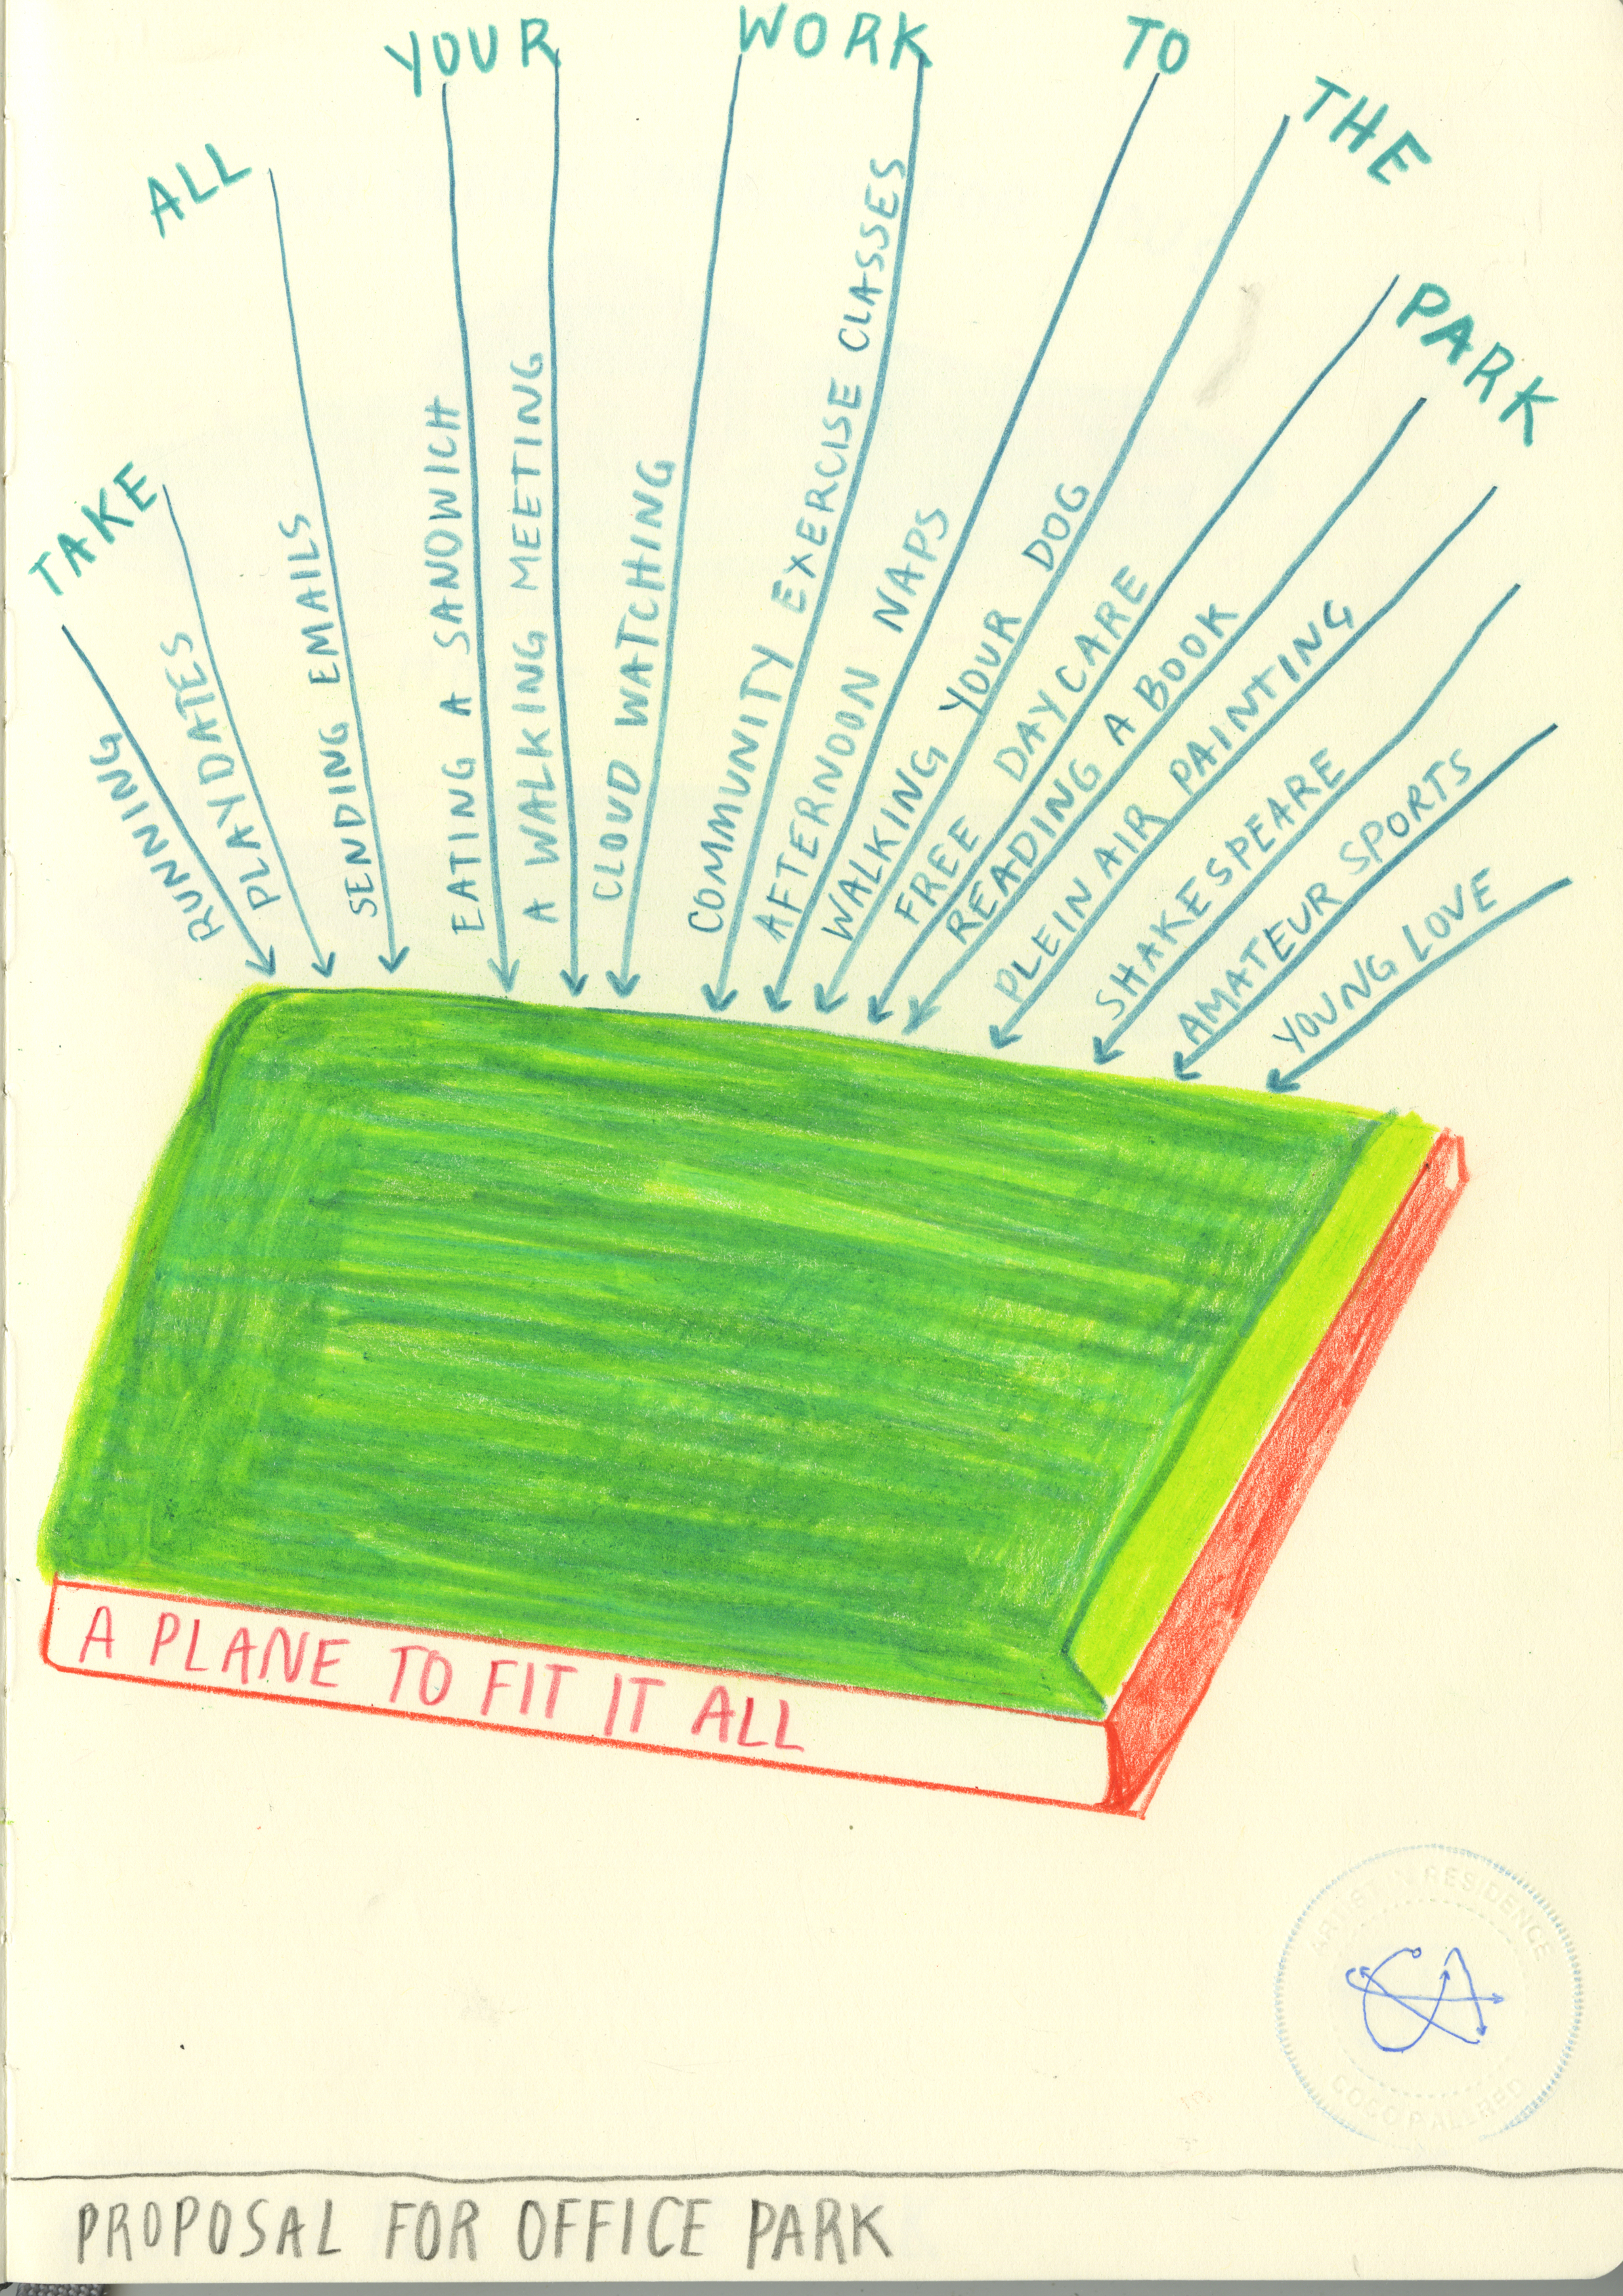 TAKE ALL YOUR WORK TO THE PARK
RUNNING
PLAY DATES
SENDING EMAILS
EATING A SANDWICH
A WALKING MEETING
CLOUD WATCHING
COMMUNITY EXERCISE CLASSES
AFTERNOON NAPS
WALKING YOUR DOG
FREE DAYCARE
READING A BOOK
PLEIN AIR PAINTING
SHAKESPEARE
AMATEUR SPORTS
YOUNG LOVE
A PLANE TO FIT IT ALL
ARTIST IN RESIDENCE
CA
COCO P ALLRED
PROPOSAL FOR OFFICE PARK